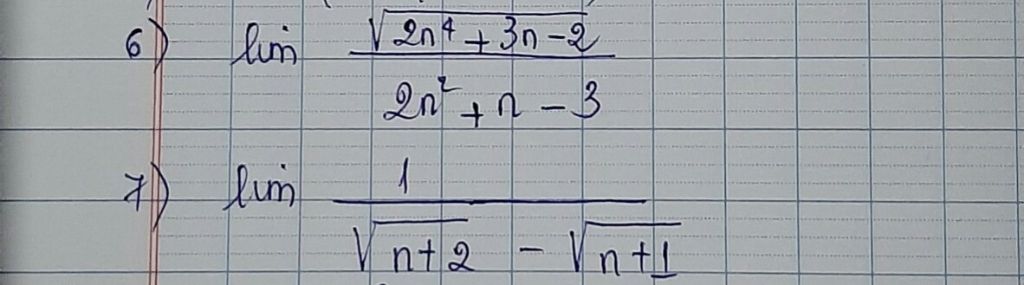 6) lim √(2n⁴ + 3n - 2) / (2n² + n - 3)
7) lim 1 / (√(n+2) - √(n+1))